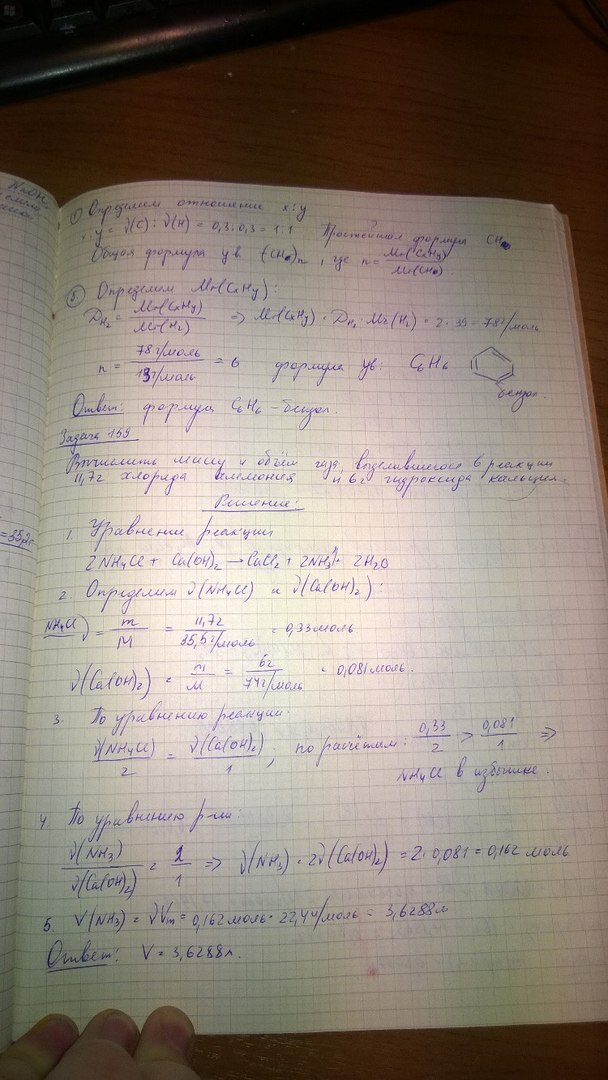 NaOH
= 35,5г
① Определим отношение x:y
x:y = ν(C):ν(H) = 0,3:0,3 = 1:1 Простейшая формула CH
Общая формула ув (CH)n, где n = Mr(CxHy)/Mr(CH)
⑤ Определим Mr(CxHy):
DH2 = Mr(CxHy)/Mr(H2) => Mr(CxHy) = DH2 · Mr(H2) = 2·39 = 78г/моль
n = 78г/моль/13г/моль = 6 формула ув: C6H6
бензол
Ответ: формула C6H6 - бензол.
Задача 159
Вычислить массу и объём газа, выделившегося в реакции
11,7г хлорида аммония и 6г гидроксида кальция.
Решение:
1. Уравнение реакции
2NH4Cl + Ca(OH)2 → CaCl2 + 2NH3↑ + 2H2O
2. Определим ν(NH4Cl) и ν(Ca(OH)2):
ν(NH4Cl) = m/M = 11,7г/35,5г/моль = 0,33моль
ν(Ca(OH)2) = m/M = 6г/74г/моль = 0,081моль.
3. По уравнению реакции:
ν(NH4Cl)/2 = ν(Ca(OH)2)/1, по расчётам: 0,33/2 > 0,081/1 =>
NH4Cl в избытке.
4. По уравнению р-ии:
ν(NH3)/ν(Ca(OH)2) = 2/1 => ν(NH3) = 2ν(Ca(OH)2) = 2·0,081 = 0,162 моль
5. V(NH3) = νVm = 0,162моль · 22,4л/моль = 3,6288л
Ответ: V = 3,6288л.